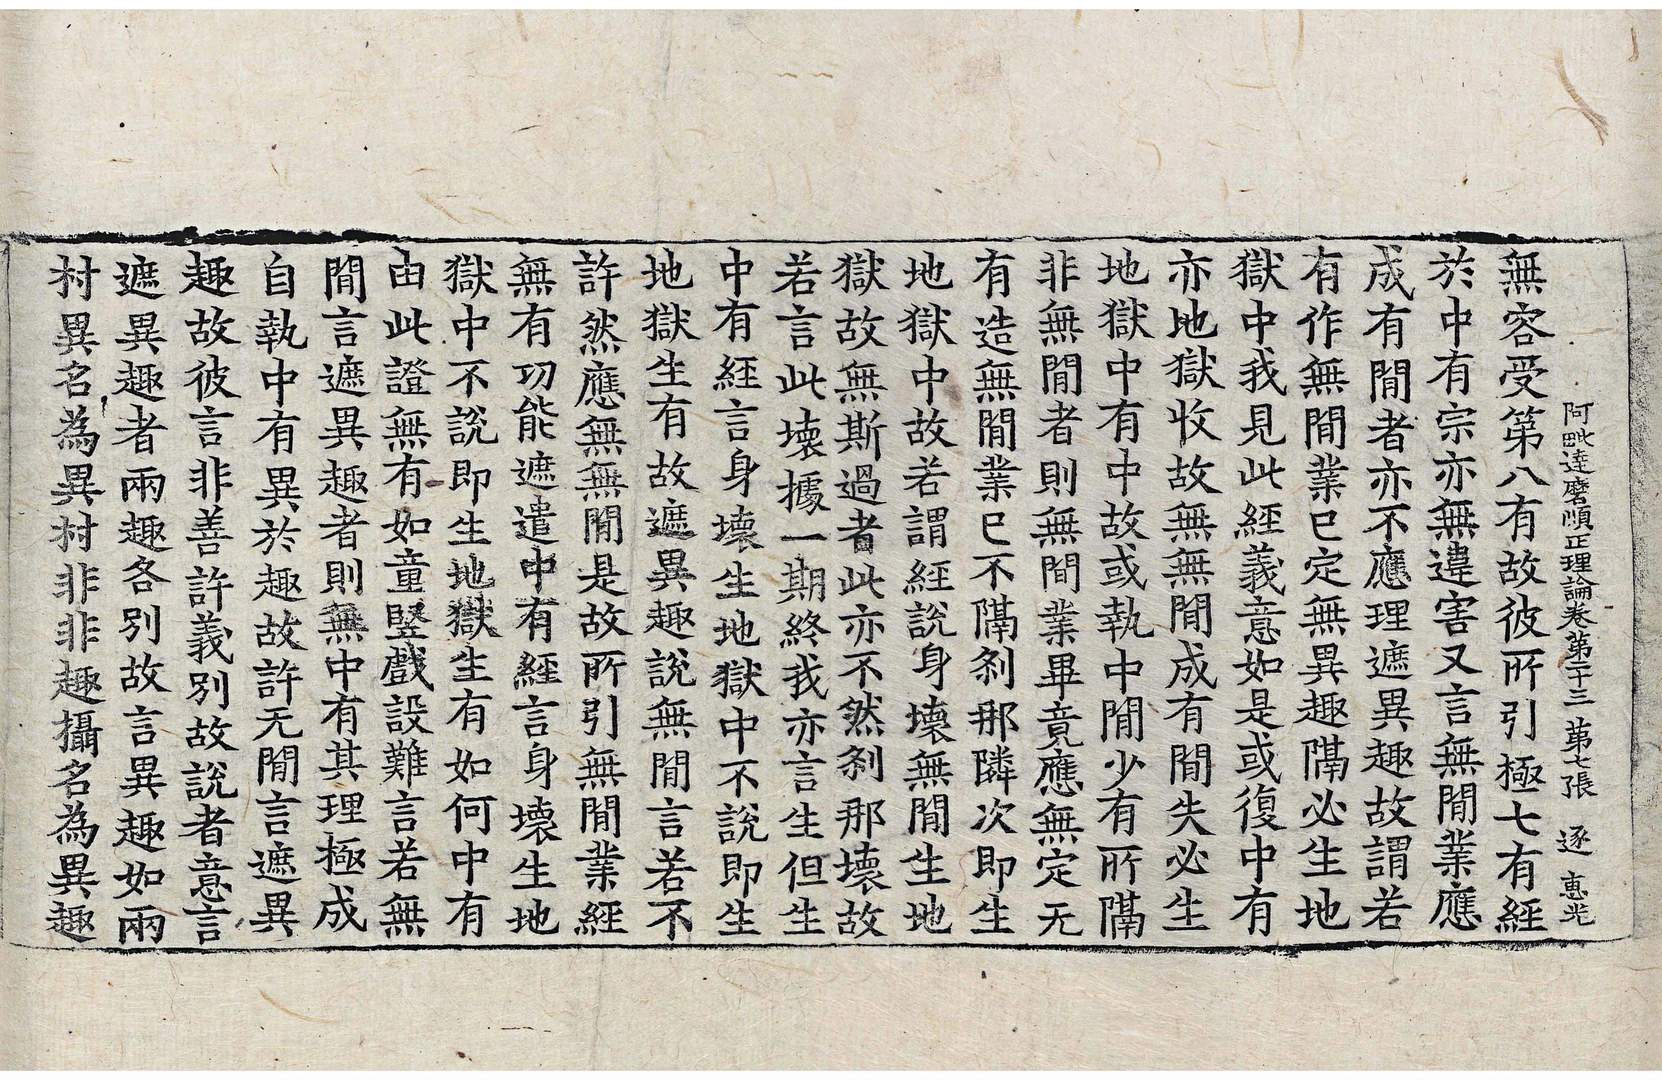 阿毗達磨順正理論卷第二十三 第七張 逐 惠光
無容受第八有故彼所引極七有經
於中有宗亦無違害又言無閒業應
成有閒者亦不應理遮異趣故謂若
有作無閒業已定無異趣隔必生地
獄中我見此經義意如是或復中有
亦地獄收故無無閒成有閒失必生
地獄中有中故或執中閒少有所隔
非無閒者則無閒業畢竟應無定无
有造無閒業已不隔刹那隣次即生
地獄中故若謂經說身壞無閒生地
獄故無斯過者此亦不然刹那壞故
若言此壞據一期終我亦言生但生
中有經言身壞生地獄中不說即生
地獄生有故遮異趣說無閒言若不
許然應無無閒是故所引無閒業經
無有功能遮遣中有經言身壞生地
獄中不說即生地獄生有如何中有
由此證無有如童竪戲設難言若無
閒言遮異趣者則無中有其理極成
自執中有異於趣故許无閒言遮異
趣故彼言非善許義別故說者意言
遮異趣者兩趣各別故言異趣如兩
村異名為異村非非趣攝名為異趣